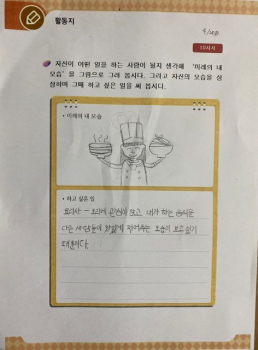 활동지
10차시
자신이 어떤 일을 하는 사람이 될지 생각해 '미래의 내
모습'을 그림으로 그려 봅시다. 그리고 자신의 모습을 상
상하며 그때 하고 싶은 일을 써 봅시다.
• 미래의 내 모습
• 하고 싶은 일
요리사 - 요리에 관심이 많고 내가 하는 음식을
다른 사람들이 맛있게 먹어주는 모습이 보고싶기
때문이다.